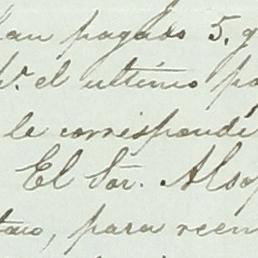 han pagado 5. q
pr. el ultimo pa
le correspondí
El Sór. Alsop
tavo, para reem